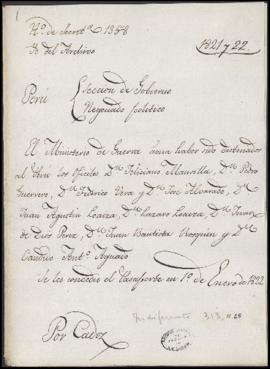 N.º de Secret.ª 1358
Yd. del Archivo
1821 y 22
Perú
Seccion de Gobierno
Negociado politico
El Ministerio de Guerra avisa haber sido destinados
al Perú los oficiales D.n Feliciano Mansilla, D.n Pedro
Guerrero, D.n Federico Vera y D.n José Alvarado, D.n
Juan Agustin Loaiza, D.n Lazaro Loaiza, D.n
de Dios Perez, D.n Juan Bautista y D.n
Ant.º
Se les concedió el Pasaporte en 1.º de Enero de 1822
Por Cadiz
Indiferente 313,